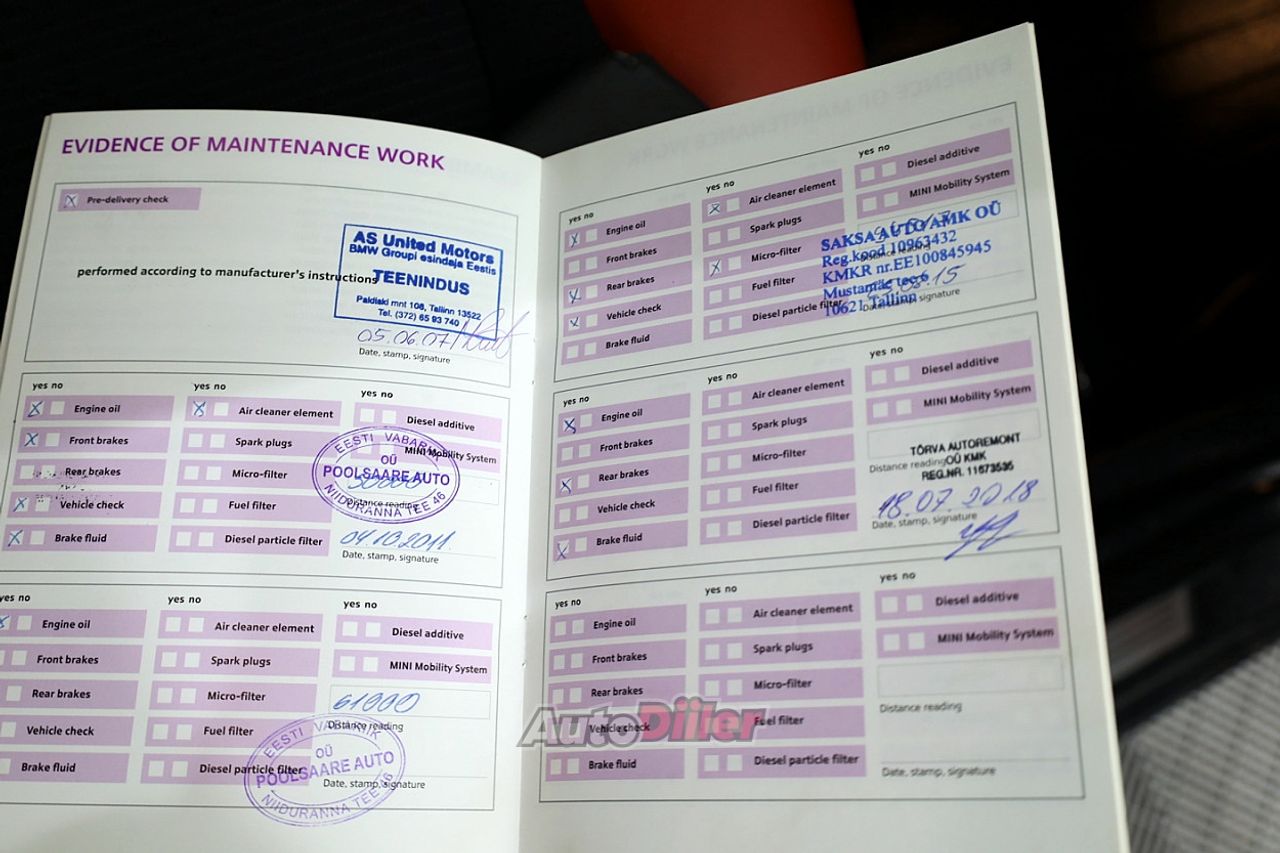 EVIDENCE OF MAINTENANCE WORK
Pre-delivery check
performed according to manufacturer's instructions
AS United Motors
BMW Groupi esindaja Eestis
TEENINDUS
Paldiski mnt 108, Tallinn 13522
Tel. (372) 65 93 740
05.06.07
Date, stamp, signature
yes no
Engine oil
Front brakes
Rear brakes
Vehicle check
Brake fluid
yes no
Air cleaner element
Spark plugs
Micro-filter
Fuel filter
Diesel particle filter
yes no
Diesel additive
MINI Mobility System
EESTI VABARIIK
OÜ
POOLSAARE AUTO
NIIDURANNA TEE 46
Distance reading
04.10.2011.
Date, stamp, signature
yes no
Engine oil
Front brakes
Rear brakes
Vehicle check
Brake fluid
yes no
Air cleaner element
Spark plugs
Micro-filter
Fuel filter
Diesel particle filter
yes no
Diesel additive
MINI Mobility System
61000
Distance reading
EESTI VABARIIK
OÜ
POOLSAARE AUTO
NIIDURANNA TEE 46
Date, stamp, signature
yes no
Engine oil
Front brakes
Rear brakes
Vehicle check
Brake fluid
yes no
Air cleaner element
Spark plugs
Micro-filter
Fuel filter
Diesel particle filter
yes no
Diesel additive
MINI Mobility System
SAKSA AUTO AMK OÜ
Reg.kood 10963432
KMKR nr.EE100845945
Mustamäe tee 6
10621 Tallinn
Distance reading
Date, stamp, signature
yes no
Engine oil
Front brakes
Rear brakes
Vehicle check
Brake fluid
yes no
Air cleaner element
Spark plugs
Micro-filter
Fuel filter
Diesel particle filter
yes no
Diesel additive
MINI Mobility System
TÕRVA AUTOREMONT
OÜ KMK
REG.NR. 11673535
Distance reading
18.07.2018
Date, stamp, signature
yes no
Engine oil
Front brakes
Rear brakes
Vehicle check
Brake fluid
yes no
Air cleaner element
Spark plugs
Micro-filter
Fuel filter
Diesel particle filter
yes no
Diesel additive
MINI Mobility System
Distance reading
Date, stamp, signature
AutoDiiler